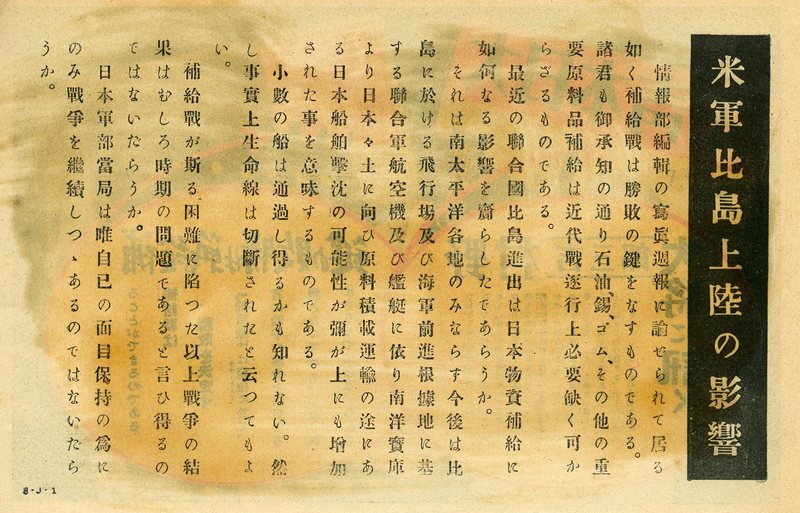 米軍比島上陸の影響
情報部編輯の寫眞週報に論ぜられて居る
如く補給戰は勝敗の鍵をなすものである。
諸君も御承知の通り石油錫、ゴム、その他の重
要原料品補給は近代戰逐行上必要缺く可か
らざるものである。
最近の聯合國比島進出は日本物資補給に
如何なる影響を齎らしたであらうか。
それは南太平洋各地のみならす今後は比
島に於ける飛行場及び海軍前進根據地に基
する聯合軍航空機及び艦艇に依り南洋寶庫
より日本々土に向ひ原料積載運輸の途にあ
る日本船舶擊沈の可能性が彌が上にも增加
された事を意味するものである。
小數の船は通過し得るかも知れない。然
し事實上生命線は切斷されたと云つてもよ
い。
補給戰が斯る困難に陷つた以上戰爭の結
果はむしろ時期の問題であると言ひ得るの
ではないたらうか。
日本軍部當局は唯自己の面目保持の爲に
のみ戰爭を繼續しつゝあるのではないたら
うか。
8-J-1